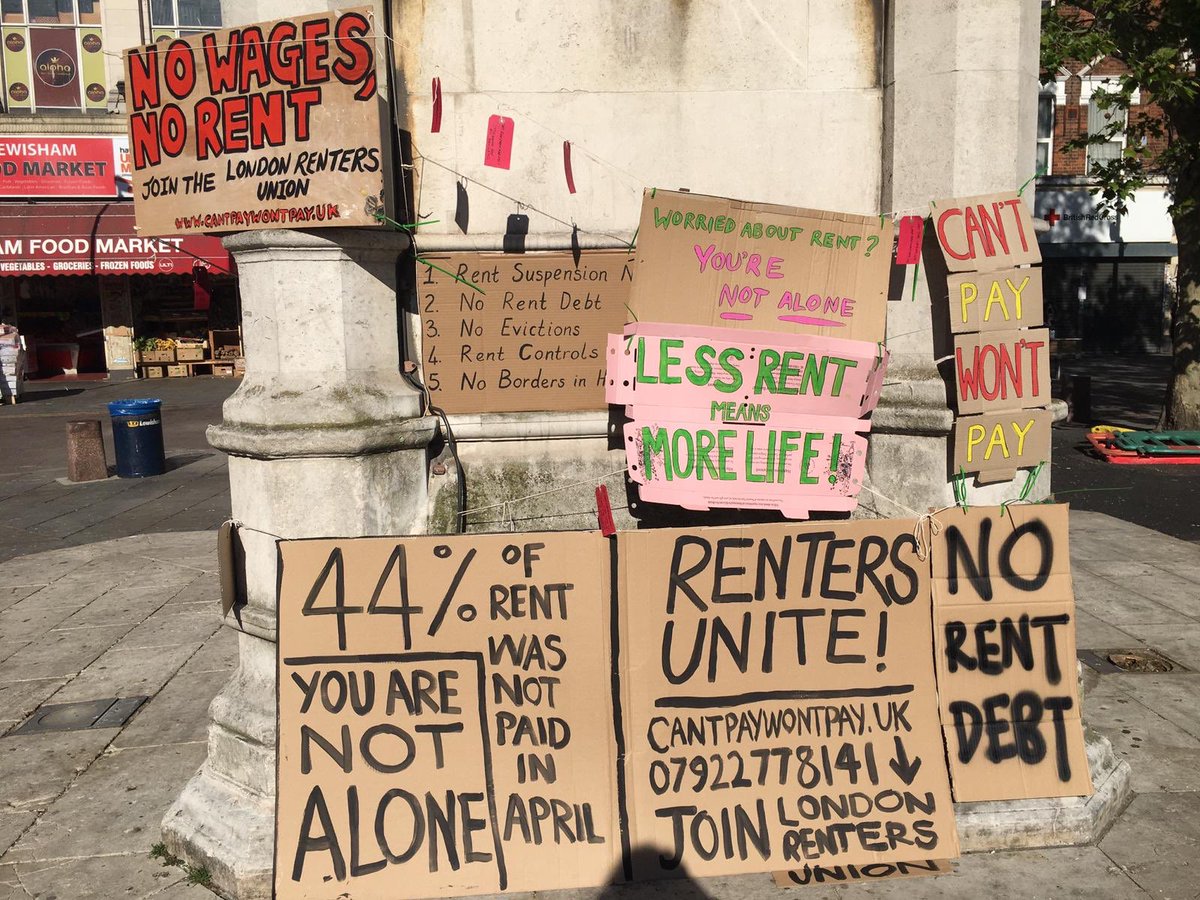 alpha
EWISHAM
OD MARKET
AM FOOD MARKET
VEGETABLES - GROCERIES - FROZEN FOODS
NO WAGES,
NO RENT
JOIN THE LONDON RENTERS
UNION
WWW.CANTPAYWONTPAY.UK
1. Rent Suspension N
2. No Rent Debt
3. No Evictions
4. Rent Controls
5. No Borders in H
WORRIED ABOUT RENT?
YOU'RE
NOT ALONE
LESS RENT
MEANS
MORE LIFE!
CAN'T
PAY
WON'T
PAY
British Red Cross
44% OF
RENT
WAS
NOT
PAID
IN
APRIL
YOU ARE
NOT
ALONE
RENTERS
UNITE!
CANTPAYWONTPAY.UK
07922778141
JOIN LONDON
RENTERS
UNION
NO
RENT
DEBT